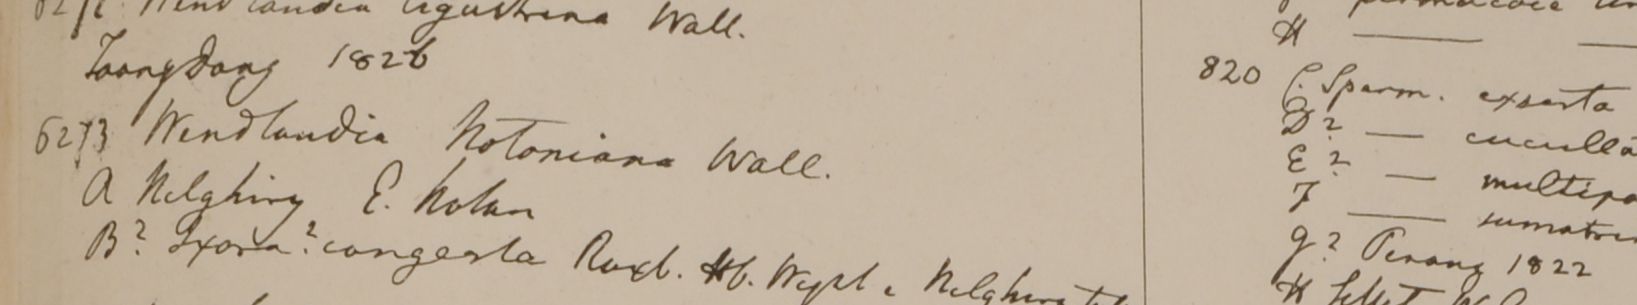 Wendlandia ligustrina Wall.
Toong Dong 1826
6273 Wendlandia Notoniana Wall.
A Nilghiry E. Noton
B? Ixora? congesta Roxb. Hb. Wight e Nilghiry
H
820 C. Sperm. exserta
D? — cuculla
E? — multipa
F — sumatr
G? Penang 1822
H